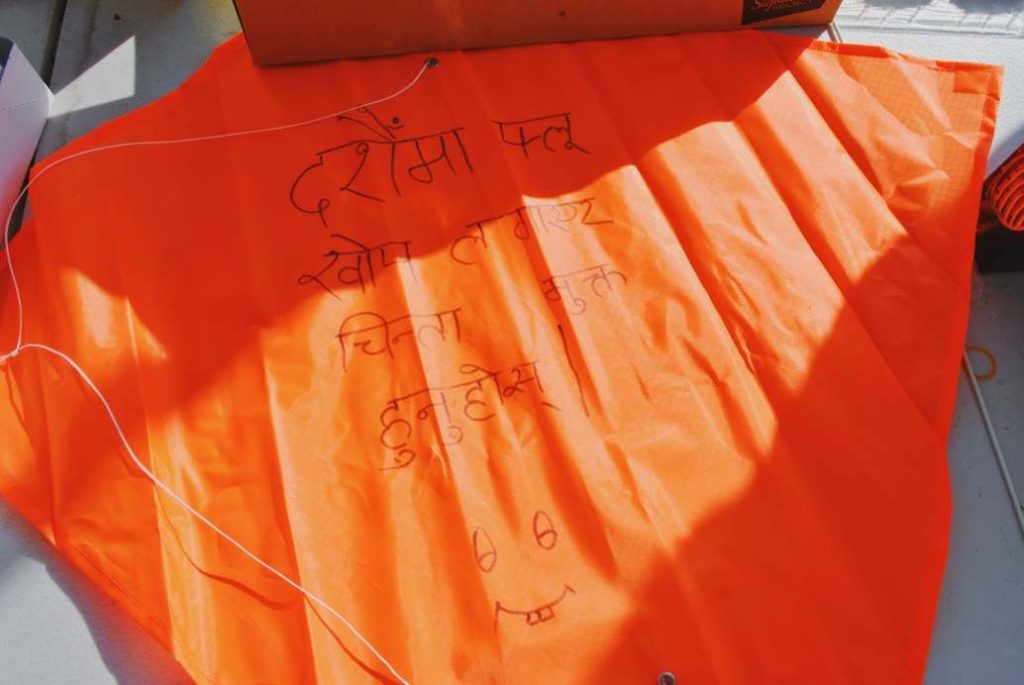 दशैँमा फ्लू
खोप लगाएर
चिन्ता मुक्त
हुनुहोस् ।